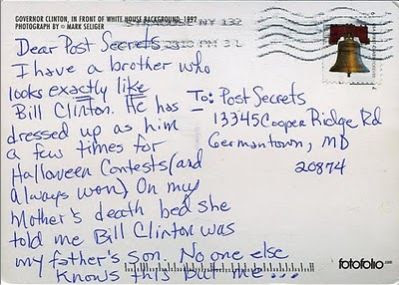 GOVERNOR CLINTON, IN FRONT OF WHITE HOUSE BACKGROUND, 1992
PHOTOGRAPH BY © MARK SELIGER
SYRACUSE NY 132
2010 PM 3 L
Dear Post Secrets
I have a brother who
looks exactly like
Bill Clinton. He has
dressed up as him
a few times for
Halloween Contests (and
always won) On my
Mother's death bed she
told me Bill Clinton was
my father's son. No one else
knows this but me...
To: Post Secrets
13345 Cooper Ridge Rd
Germantown, MD
20874
fotofolio.com